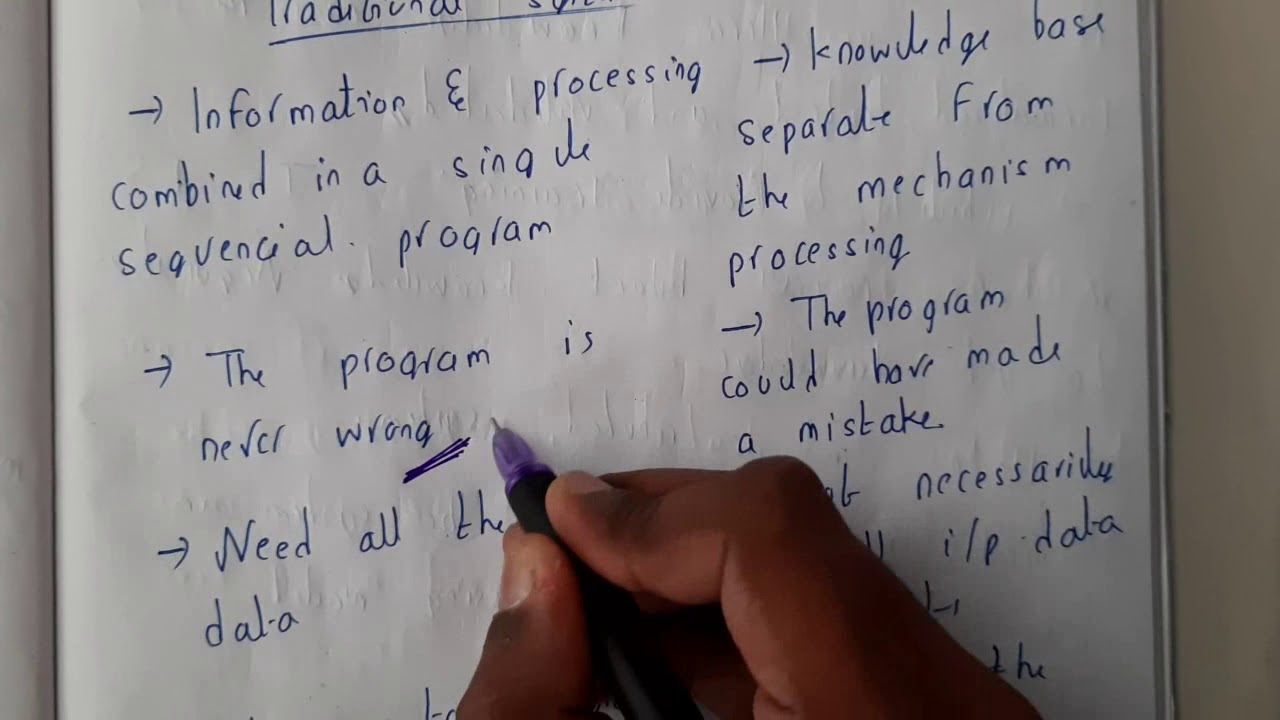 Traditional
→ Information & processing
combined in a single
sequencial. program
→ The program is
never wrong
→ Need all the
data
→ knowledge base
separate from
the mechanism
processing
→ The program
could have made
a mistake
necessarily
i/p data
the